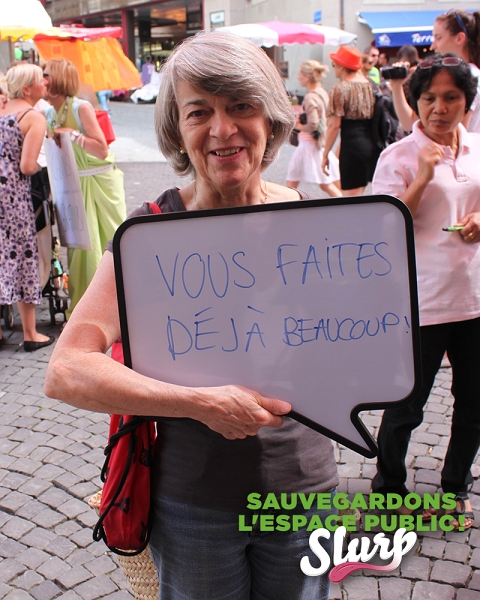 Terre
VOUS FAITES
DÉJÀ BEAUCOUP!
SAUVEGARDONS
L'ESPACE PUBLIC!
Slurp